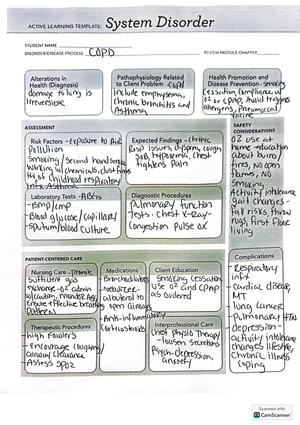 ACTIVE LEARNING TEMPLATE: System Disorder
STUDENT NAME
DISORDER/DISEASE PROCESS COPD
REVIEW MODULE CHAPTER
Alterations in
Health (Diagnosis)
damage to lung is
irreversible
Pathophysiology Related
to Client Problem - COPD
include emphysema,
chronic bronchitis and
Asthma
Health Promotion and
Disease Prevention - smoking
cessation, compliance w/
O2 or CPAP, Avoid triggers
allergens, Pneumococcal
vaccine
ASSESSMENT
SAFETY
CONSIDERATIONS
Risk Factors - exposure to Air
Pollution
Smoking / Second hand smoke
working w/ chemicals, dust, fumes
hx of childhood respiratory
infx, Asthma
Expected Findings - chronic
cough, dyspnea,
hypoxemia, chest
tightens pain
Laboratory Tests - ABGs
- BMP/CMP
Blood glucose/capillary
- sputum/blood culture
Diagnostic Procedures
Pulmonary function
Tests - Chest X-ray -
Congestion pulse ox
O2 use at
home - education
about burns/
fires, no open
flames, NO
smoking
Activity intolerance
gait changes -
fall risks, throw
rugs, first floor
living
PATIENT-CENTERED CARE
Complications
Nursing Care - promote
sufficient gas
exchange - O2 admin
Ensure effective breathing
pattern
Medications
- Bronchodilators
- Nebulizer -
albuterol to
open airways
- Anti-inflammatory
- Corticosteroids
Client Education
- Smoking cessation
Use O2 and CPAP
as ordered
Therapeutic Procedures
- high Fowlers
- Encourage coughing/
airway clearance
Assess SpO2
Interprofessional Care
- Chest physio Therapy
- loosen secretions
Psych - depression,
anxiety
- Respiratory
infx
- cardiac disease,
MI
- lung cancer
- Pulmonary HTN
- depression -
activity/intolerance
changes lifestyle,
Chronic illness
coping
Scanned with
CamScanner